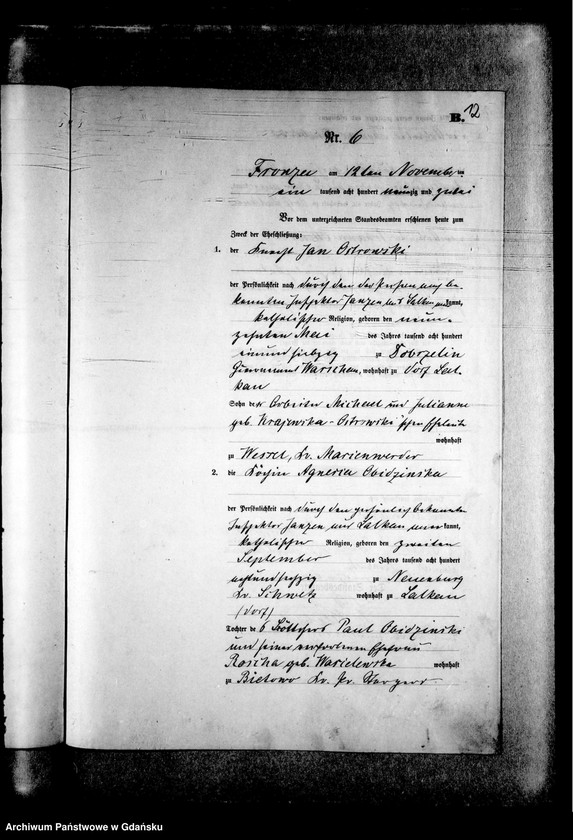 B. 12
Nr. 6
am 12ten November
ein tausend acht hundert neunzig und zwei
Vor dem unterzeichneten Standesbeamten erschienen heute zum
Zweck der Eheschließung:
1. der Knecht Jan Ostrowski
der Persönlichkeit nach durch den der Person nach be-
kannten Inspektor Janzen aus Lalkau aner kannt,
katholischer Religion, geboren den neun-
zehnten Mai des Jahres tausend acht hundert
einund siebzig zu Dobrzelin
Gouvernement Warschau, wohnhaft zu Dorf Lal-
kau
Sohn der Arbeiter Michael und Julianna
geb. Krajewska-Ostrowski'schen Eheleute
wohnhaft
zu Wessel, Kr. Marienwerder
2. die Köchin Obidzinska
der Persönlichkeit nach durch den persönlich bekannten
Inspektor Janzen aus Lalkau aner kannt,
katholischer Religion, geboren den zweiten
September des Jahres tausend acht hundert
achtundsechzig zu Neuenburg
Kr. Schwetz wohnhaft zu Lalkau
(Dorf)
Tochter des Böttchers Paul Obidzinski
und seiner verstorbenen Ehefrau
geb. wohnhaft
zu Bietowo Kr. Pr. Stargard
Archiwum Państwowe w Gdańsku